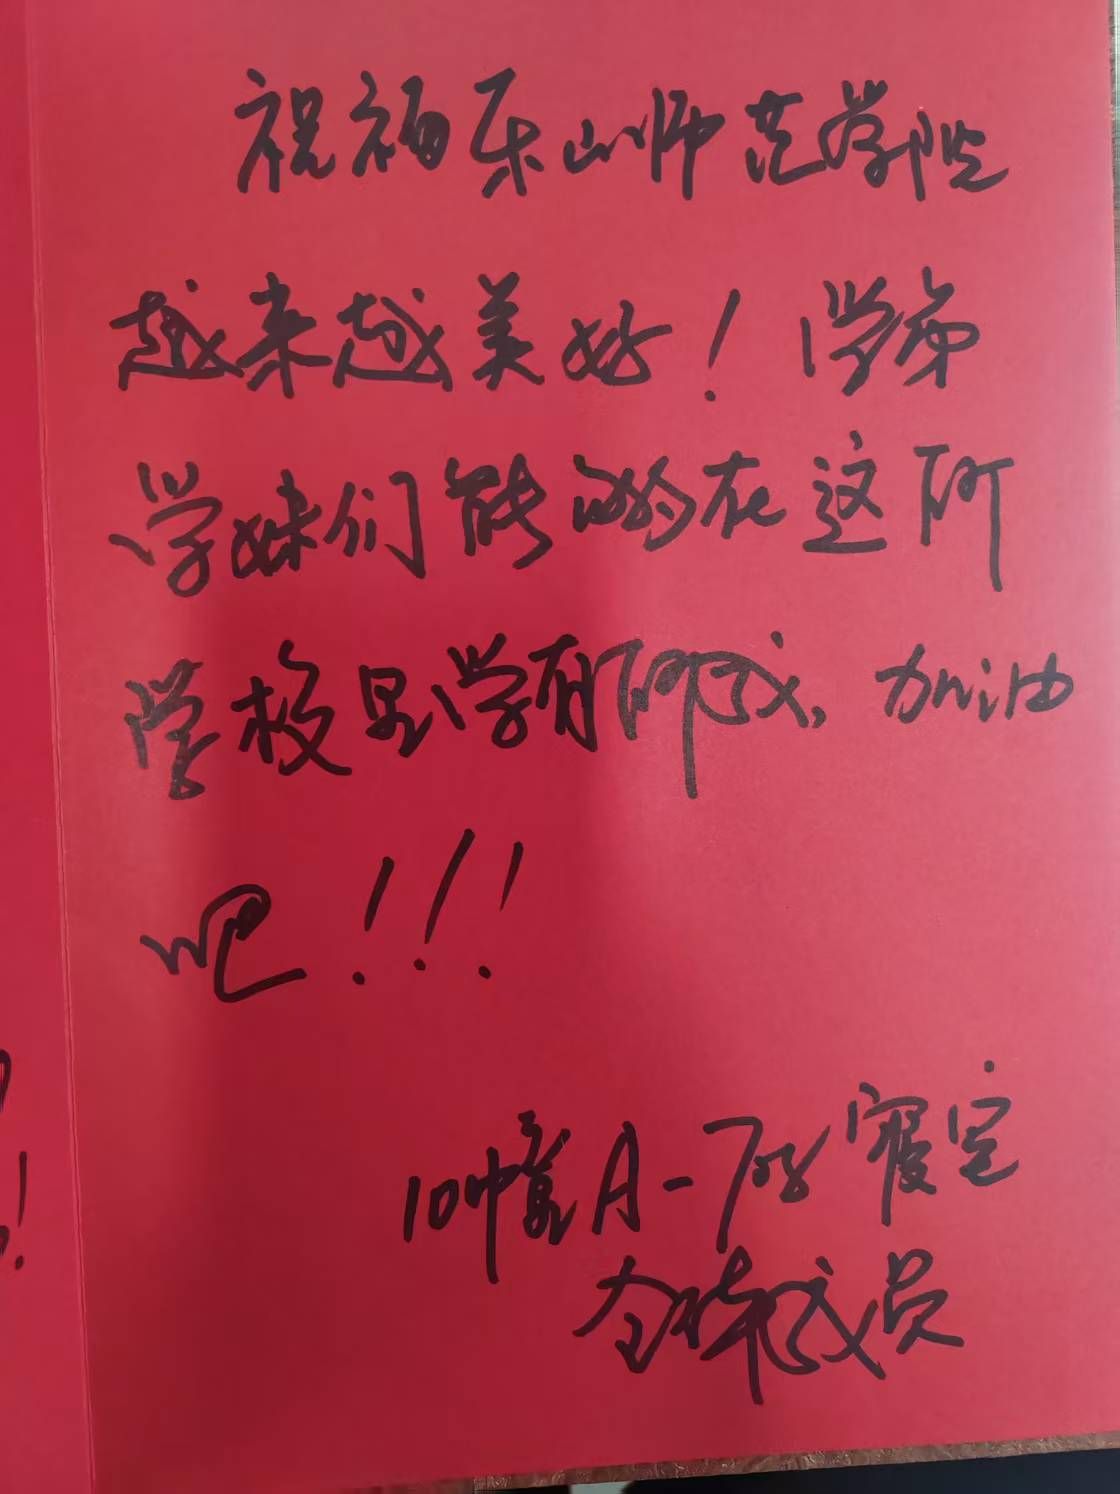 祝福乐山师范学院
越来越美好！学弟
学妹们能够在这所
学校里学有所成，加油
吧！！！
10幢 A-708寝室
全体成员